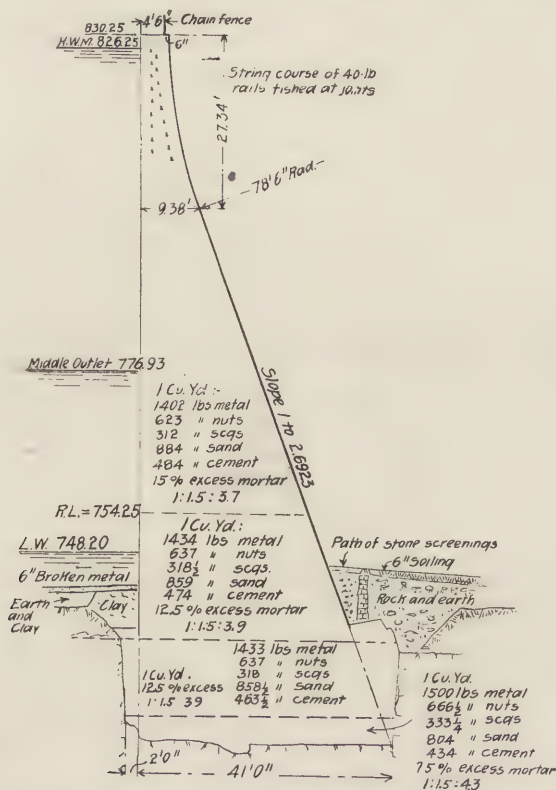 4'6"
Chain fence
830.25
H.W.M. 826.25
6"
String course of 40-lb
rails fished at joints
27.34'
78'6" Rad.
9.38'
Middle Outlet 776.93
Slope 1 to 2.6923
1 Cu. Yd :-
1402 lbs metal
623 " nuts
312 " scgs
884 " sand
484 " cement
15% excess mortar
1:1.5:3.7
R.L.=754.25
1 Cu. Yd.:
1434 lbs metal
637 " nuts
318½ " scgs.
859 " sand
474 " cement
12.5% excess mortar
1:1.5:3.9
L.W. 748.20
6" Broken metal
Earth
and
Clay
Clay
Path of stone screenings
6" Soiling
Rock and earth
1 Cu. Yd.
12.5% excess
1:1.5 3.9
1433 lbs metal
637 " nuts
318 " scgs
858½ " sand
463½ " cement
1 Cu. Yd.
1500 lbs metal
666½ " nuts
333¼ " scgs
804 " sand
434 " cement
7.5% excess mortar
1:1.5:4.3
2'0"
41'0"